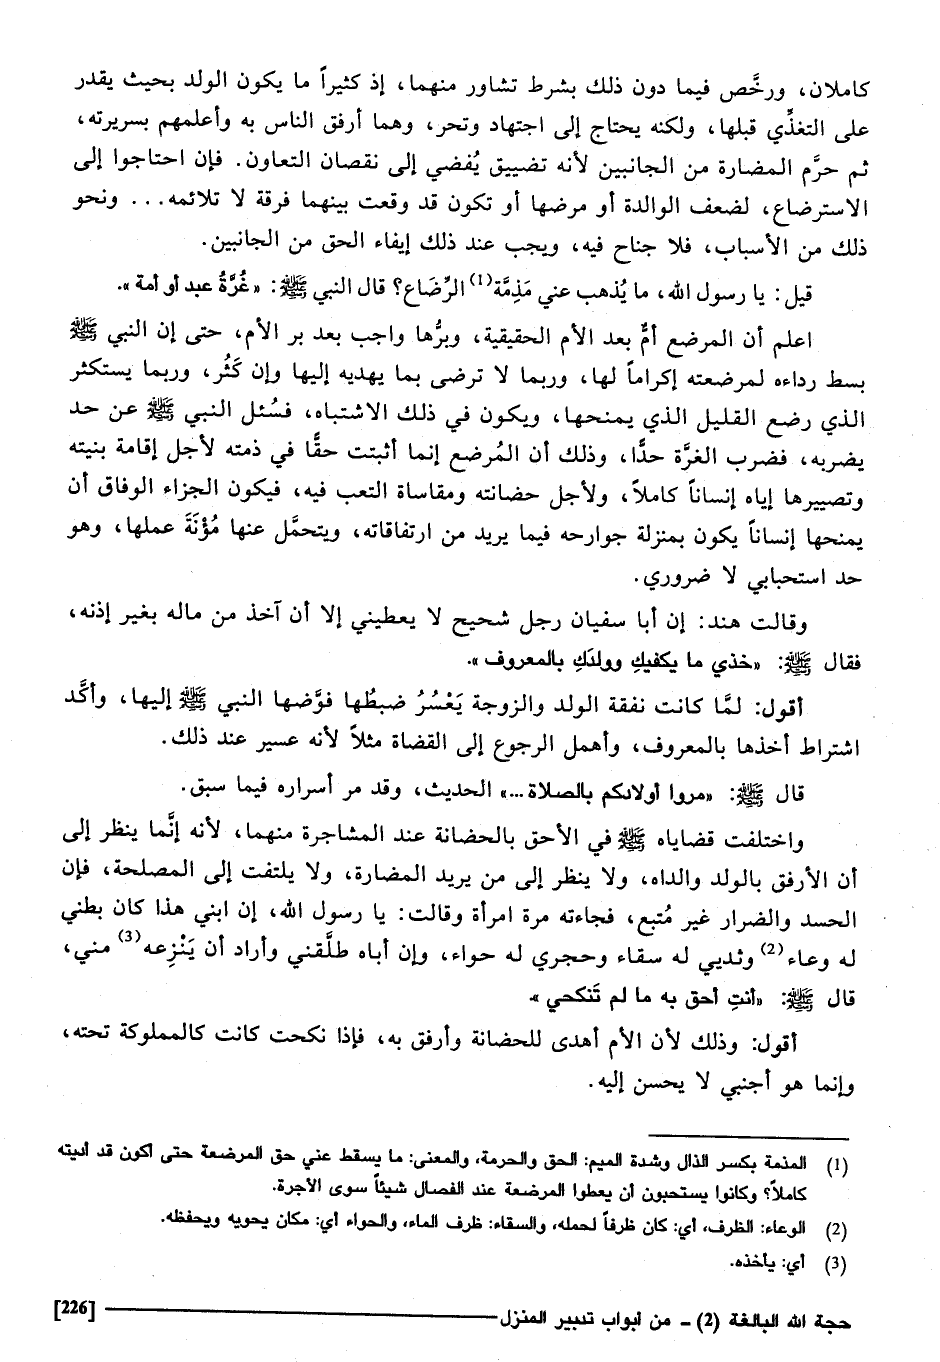 كاملان، ورخَّص فيما دون ذلك بشرط تشاور منهما، إذ كثيراً ما يكون الولد بحيث يقدر
على التغذِّي قبلها، ولكنه يحتاج إلى اجتهاد وتحر، وهما أرفق الناس به وأعلمهم بسريرته،
ثم حرَّم المضارة من الجانبين لأنه تضييق يُفضي إلى نقصان التعاون. فإن احتاجوا إلى
الاسترضاع، لضعف الوالدة أو مرضها أو تكون قد وقعت بينهما فرقة لا تلائمه... ونحو
ذلك من الأسباب، فلا جناح فيه، ويجب عند ذلك إيفاء الحق من الجانبين.
قيل: يا رسول الله، ما يُذهب عني مَذِمَّة(1) الرِّضَاع؟ قال النبي ﷺ: «غُرَّةُ عبد أو أمة».
اعلم أن المرضع أمٌّ بعد الأم الحقيقية، وبرُّها واجب بعد بر الأم، حتى إن النبي ﷺ
بسط رداءه لمرضعته إكراماً لها، وربما لا ترضى بما يهديه إليها وإن كَثُر، وربما يستكثر
الذي رضع القليل الذي يمنحها، ويكون في ذلك الاشتباه، فسُئل النبي ﷺ عن حد
يضربه، فضرب الغرَّة حدًّا، وذلك أن المُرضع إنما أثبتت حقًّا في ذمته لأجل إقامة بنيته
وتصييرها إياه إنساناً كاملاً، ولأجل حضانته ومقاساة التعب فيه، فيكون الجزاء الوفاق أن
يمنحها إنساناً يكون بمنزلة جوارحه فيما يريد من ارتفاقاته، ويتحمَّل عنها مُؤْنَةَ عملها، وهو
حد استحبابي لا ضروري.
وقالت هند: إن أبا سفيان رجل شحيح لا يعطيني إلا أن آخذ من ماله بغير إذنه،
فقال ﷺ: «خذي ما يكفيكِ وولدَكِ بالمعروف».
أقول: لمَّا كانت نفقة الولد والزوجة يَعْسُرُ ضبطُها فوَّضها النبي ﷺ إليها، وأكَّد
اشتراط أخذها بالمعروف، وأهمل الرجوع إلى القضاة مثلاً لأنه عسير عند ذلك.
قال ﷺ: «مروا أولادكم بالصلاة...» الحديث، وقد مر أسراره فيما سبق.
واختلفت قضاياه ﷺ في الأحق بالحضانة عند المشاجرة منهما، لأنه إنَّما ينظر إلى
أن الأرفق بالولد والداه، ولا ينظر إلى من يريد المضارة، ولا يلتفت إلى المصلحة، فإن
الحسد والضرار غير مُتبع، فجاءته مرة امرأة وقالت: يا رسول الله، إن ابني هذا كان بطني
له وعاء(2) وثديي له سقاء وحجري له حواء، وإن أباه طلَّقني وأراد أن يَنْزِعه(3) مني،
قال ﷺ: «أنتِ أحق به ما لم تَنكحي».
أقول: وذلك لأن الأم أهدى للحضانة وأرفق به، فإذا نكحت كانت كالمملوكة تحته،
وإنما هو أجنبي لا يحسن إليه.
(1) المذمة بكسر الذال وشدة الميم: الحق والحرمة، والمعنى: ما يسقط عني حق المرضعة حتى أكون قد أديته
كاملاً؟ وكانوا يستحبون أن يعطوا المرضعة عند الفصال شيئاً سوى الأجرة.
(2) الوعاء: الظرف، أي: كان ظرفاً لحمله، والسقاء: ظرف الماء، والحواء أي: مكان يحويه ويحفظه.
(3) أي: يأخذه.
حجة الله البالغة (2) - من أبواب تدبير المنزل [226]